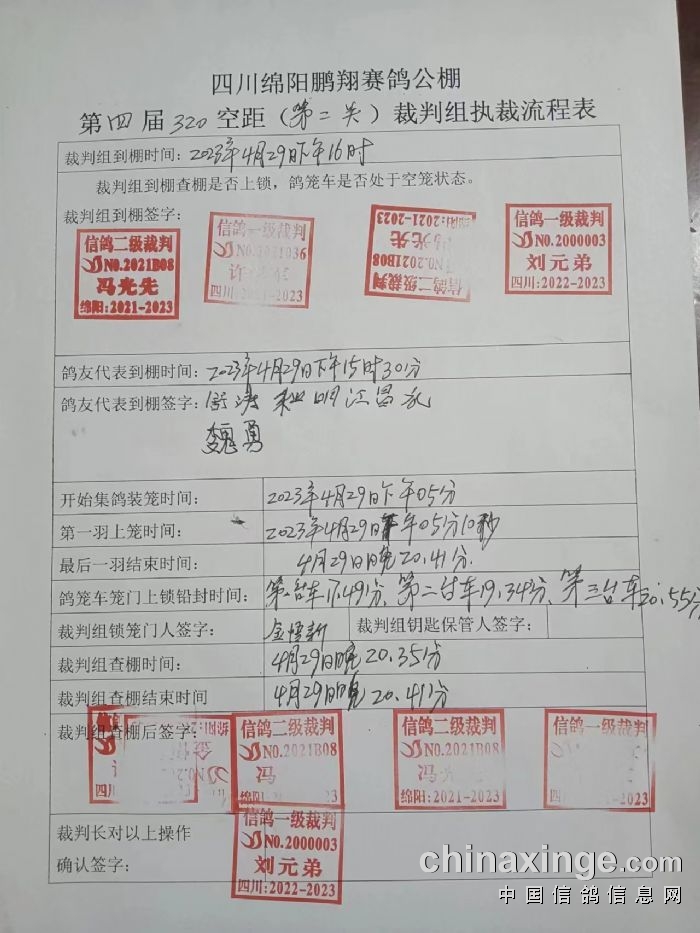 四川绵阳鹏翔赛鸽公棚
第四届320空距(第二关)裁判组执裁流程表
裁判组到棚时间:2023年4月29日下午16时
裁判组到棚查棚是否上锁,鸽笼车是否处于空笼状态。
裁判组到棚签字:
信鸽二级裁判
NO.2021B08
冯光先
绵阳:2021-2023
信鸽一级裁判
NO.2021036
四川:2021-2023
绵阳:2021-2023
冯光先
NO.2021B08
信鸽二级裁判
信鸽一级裁判
NO.2000003
刘元弟
四川:2022-2023
鸽友代表到棚时间:2023年4月29日下午15时30分
鸽友代表到棚签字:
魏勇
开始集鸽装笼时间:2023年4月29日下午05分
第一羽上笼时间:2023年4月29日下午05分10秒
最后一羽结束时间:4月29日晚20.41分.
鸽笼车笼门上锁铅封时间:第一台车17.49分、第二台车19.34分、第三台车20:55分
裁判组锁笼门人签字: 裁判组钥匙保管人签字:
裁判组查棚时间:4月29日晚20.35分
裁判组查棚结束时间 4月29日晚20.41分
裁判组查棚后签字:
信鸽二级裁判
NO.2021B08
冯
2021-2023
信鸽二级裁判
NO.2021B08
冯光
绵阳:2021-2023
信鸽一级裁判
2023
裁判长对以上操作
确认签字:
信鸽一级裁判
NO.2000003
刘元弟
四川:2022-2023
chinaxinge.com
中国信鸽信息网